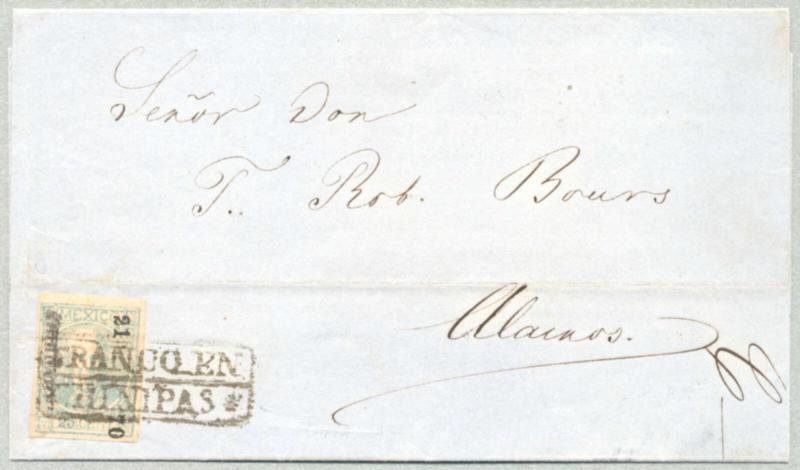 Señor Don
T. Rob. Bours
Alamos.
MEXICO
21 70
FRANCO EN
25 CENT